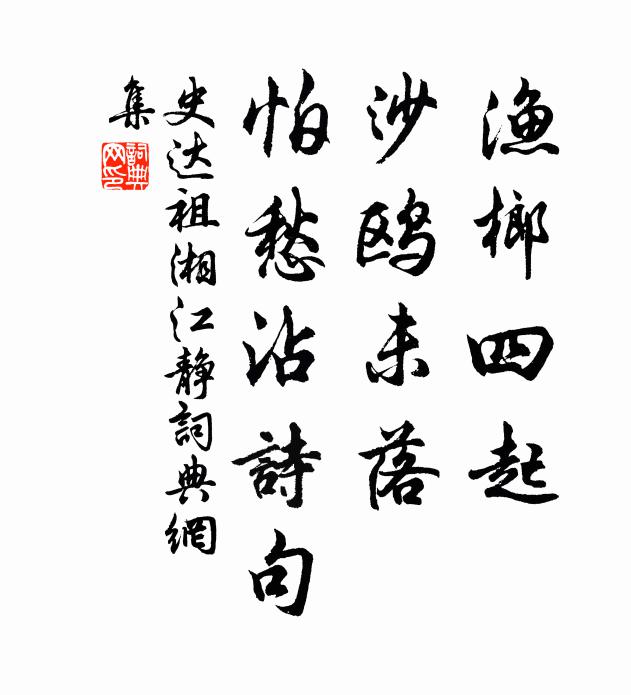 渔榔四起
沙鸥未落
怕愁沾詩句
史达祖湘江静詞典網
集
詞典
网印